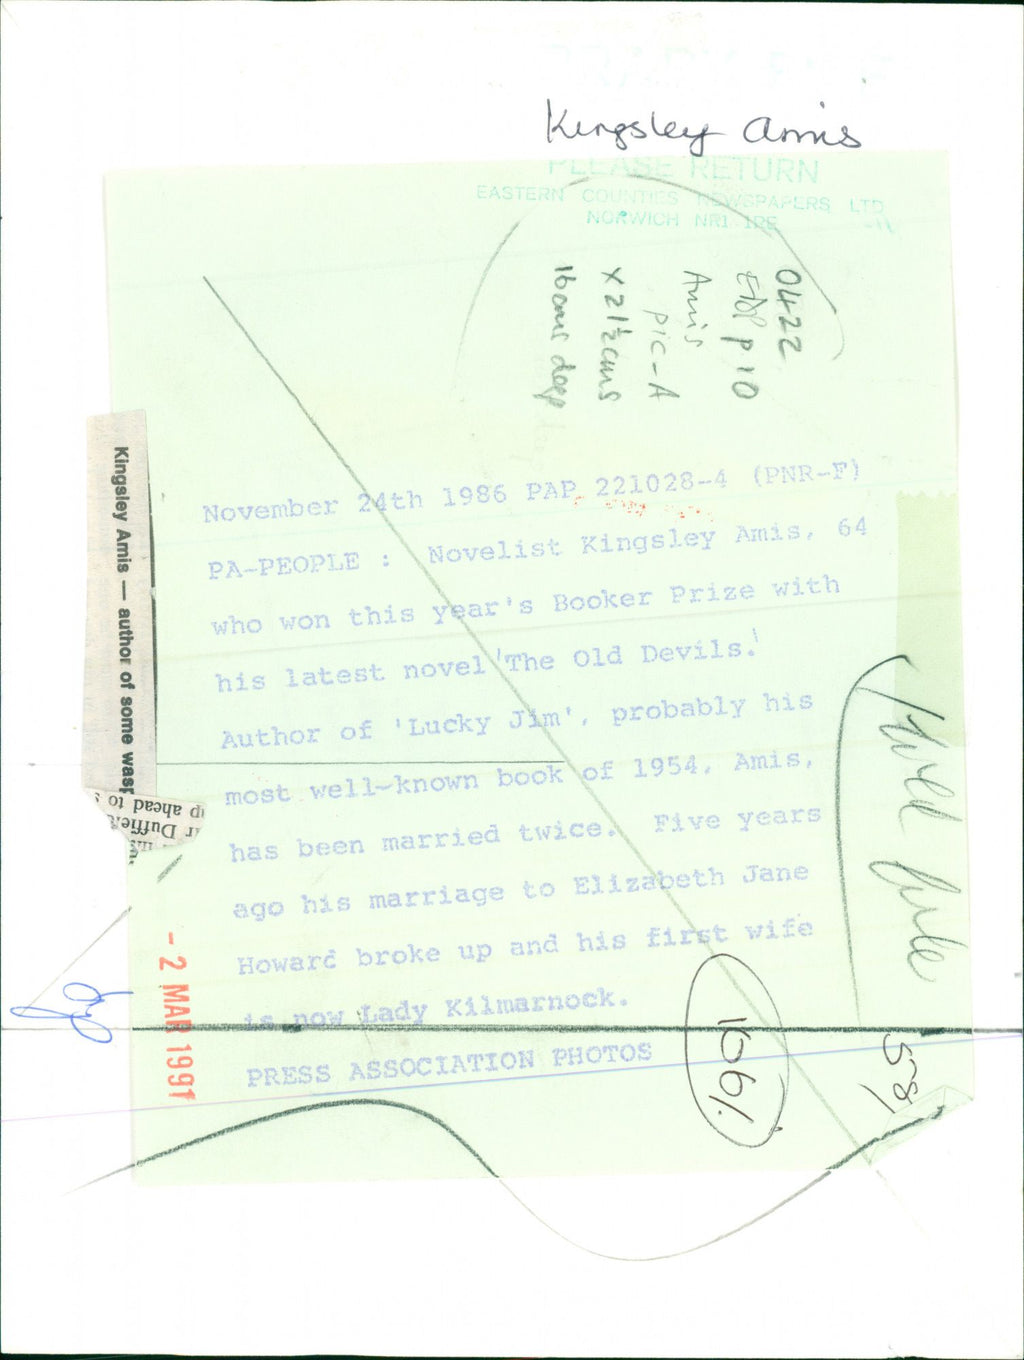 Kingsley Amis
PLEASE RETURN
EASTERN COUNTIES NEWSPAPERS LTD
NORWICH NR1 1RE
0422
EDP p10
Amis
pic-A
x 21½cms
16cms deep
November 24th 1986 PAP 221028-4 (PNR-F)
PA-PEOPLE : Novelist Kingsley Amis, 64
who won this year's Booker Prize with
his latest novel 'The Old Devils.'
Author of 'Lucky Jim', probably his
most well-known book of 1954, Amis,
has been married twice. Five years
ago his marriage to Elizabeth Jane
Howard broke up and his first wife
is now Lady Kilmarnock.
PRESS ASSOCIATION PHOTOS
Kingsley Amis — author of some wasp
up ahead to
r Duffield
- 2 MAR 1991
166%
58%